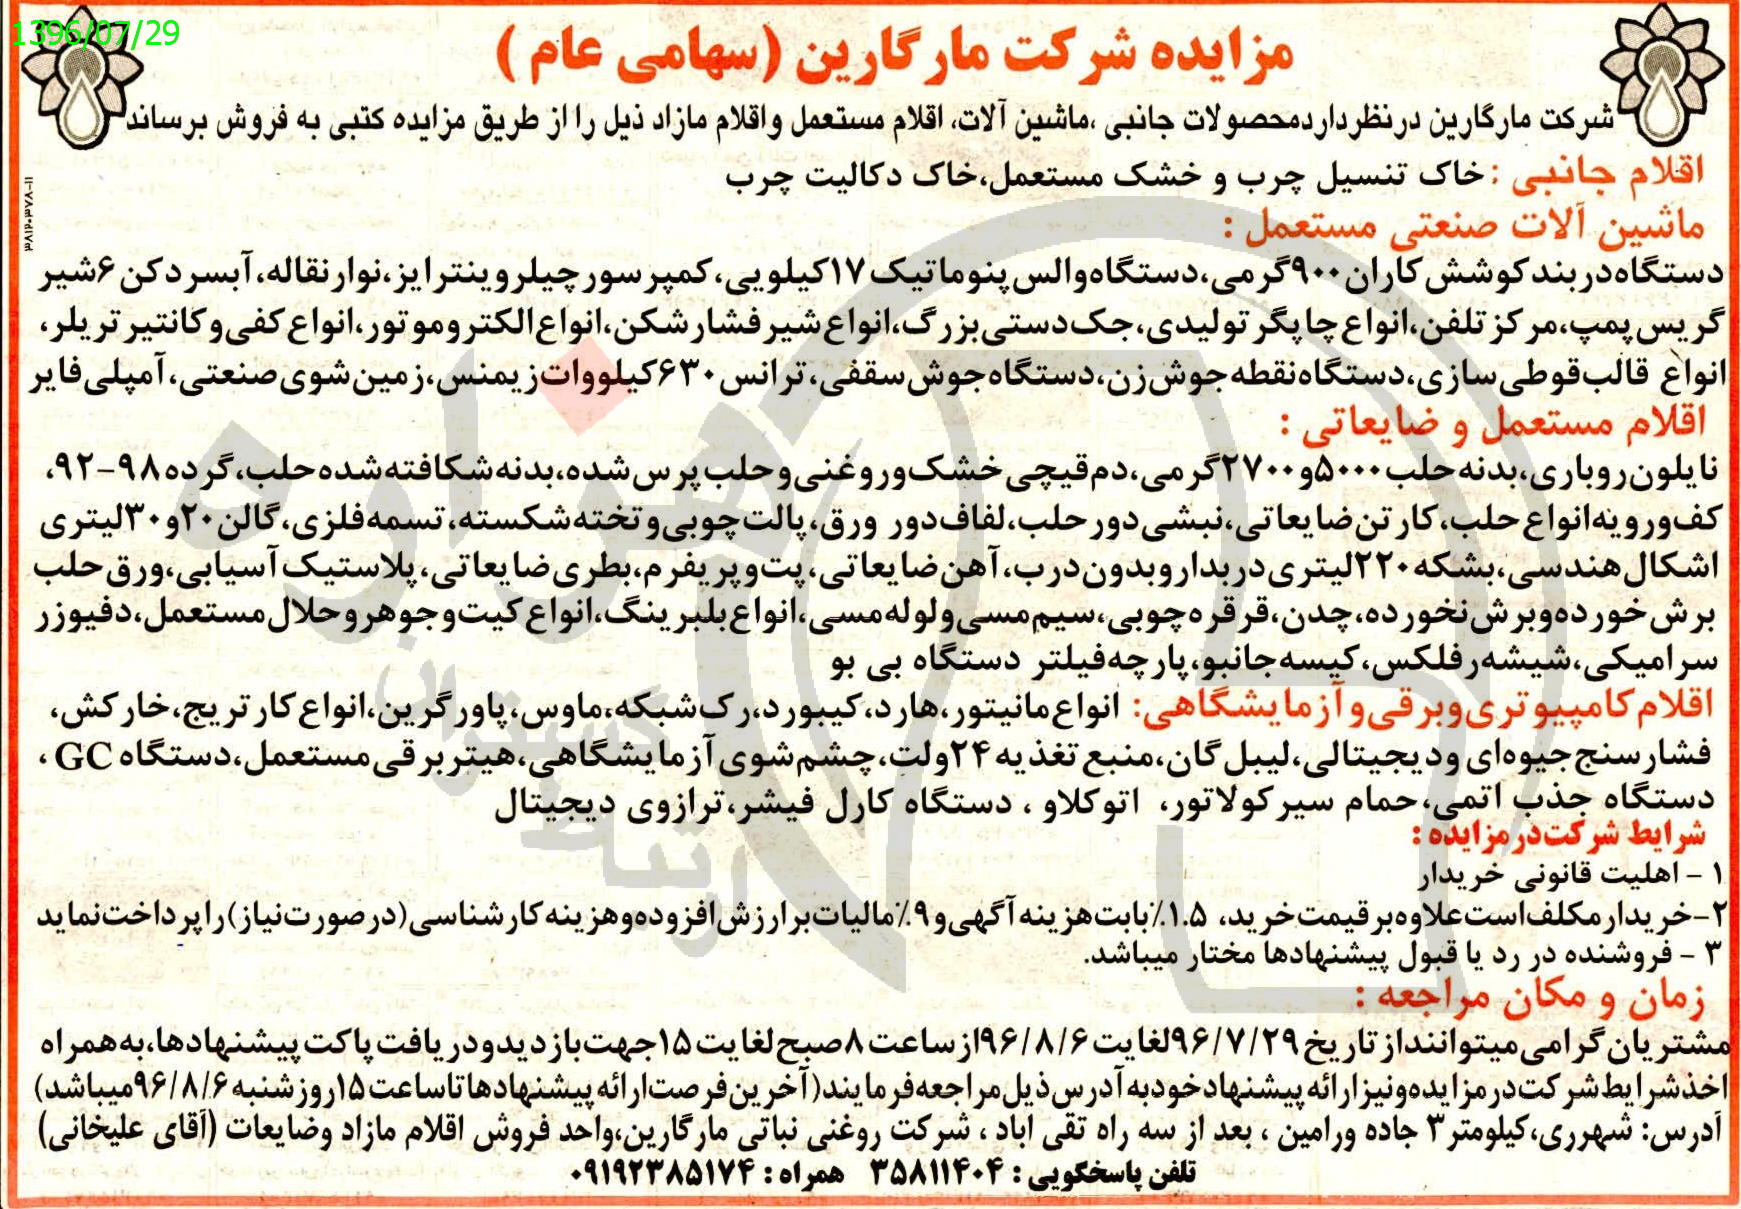 1396/07/29
مزایده شرکت مارگارین (سهامی عام )
شرکت مارگارین درنظرداردمحصولات جانبی ،ماشین آلات، اقلام مستعمل واقلام مازاد ذیل را از طریق مزایده کتبی به فروش برساند
اقلام جانبی : خاک تنسیل چرب و خشک مستعمل،خاک دکالیت چرب
ماشین آلات صنعتی مستعمل :
دستگاه‌دربندکوشش‌کاران ۹۰۰گرمی،دستگاه‌والس‌پنوماتیک۱۷کیلویی،کمپرسورچیلروینترایز،نوارنقاله،آبسردکن۶شیر
گریس‌پمپ،مرکزتلفن،انواع‌چاپگرتولیدی،جک‌دستی‌بزرگ،انواع‌شیرفشارشکن،انواع‌الکتروموتور،انواع‌کفی‌وکانتیرتریلر،
انواع قالب‌قوطی‌سازی،دستگاه‌نقطه‌جوش‌زن،دستگاه‌جوش‌سقفی،ترانس۶۳۰کیلووات‌زیمنس،زمین‌شوی‌صنعتی،آمپلی‌فایر
اقلام مستعمل و ضایعاتی :
نایلون‌روباری،بدنه‌حلب۵۰۰۰و۲۷۰۰گرمی،دم‌قیچی‌خشک‌وروغنی‌وحلب‌پرس‌شده،بدنه‌شکافته‌شده‌حلب،گرده۹۸-۹۲،
کف‌ورویه‌انواع‌حلب،کارتن‌ضایعاتی،نبشی‌دورحلب،لفاف‌دور ورق،پالت‌چوبی‌وتخته‌شکسته،تسمه‌فلزی،گالن۲۰و۳۰لیتری
اشکال‌هندسی،بشکه۲۲۰لیتری‌دربداروبدون‌درب،آهن‌ضایعاتی،پت‌وپریفرم،بطری‌ضایعاتی،پلاستیک‌آسیابی،ورق‌حلب
برش‌خورده‌وبرش‌نخورده،چدن،قرقره‌چوبی،سیم‌مسی‌ولوله‌مسی،انواع‌بلبرینگ،انواع‌کیت‌وجوهروحلال‌مستعمل،دفیوزر
سرامیکی،شیشه‌رفلکس،کیسه‌جانبو،پارچه‌فیلتر دستگاه بی بو
اقلام‌کامپیوتری‌وبرقی‌وآزمایشگاهی: انواع‌مانیتور،هارد،کیبورد،رک‌شبکه،ماوس،پاورگرین،انواع‌کارتریج،خارکش،
فشارسنج‌جیوه‌ای ودیجیتالی،لیبل‌گان،منبع‌تغذیه۲۴ولت،چشم‌شوی‌آزمایشگاهی،هیتربرقی‌مستعمل،دستگاهGC ،
دستگاه جذب اتمی،حمام سیرکولاتور، اتوکلاو ، دستگاه کارل فیشر،ترازوی دیجیتال
شرایط شرکت‌درمزایده :
۱ - اهلیت قانونی خریدار
۲-خریدارمکلف‌است‌علاوه‌برقیمت‌خرید، ۱.۵٪بابت‌هزینه‌آگهی‌و۹٪مالیات‌برارزش‌افزوده‌وهزینه‌کارشناسی(درصورت‌نیاز)راپرداخت‌نماید
۳ - فروشنده در رد یا قبول پیشنهادها مختار میباشد.
زمان و مکان مراجعه :
مشتریان‌گرامی‌میتواننداز‌تاریخ۹۶/۷/۲۹لغایت۹۶/۸/۶ازساعت۸صبح‌لغایت۱۵جهت‌بازدیدودریافت‌پاکت‌پیشنهادها،به‌همراه
اخذشرایط‌شرکت‌درمزایده‌ونیزارائه‌پیشنهادخودبه‌آدرس‌ذیل‌مراجعه‌فرمایند(آخرین‌فرصت‌ارائه‌پیشنهادهاتاساعت۱۵روزشنبه۹۶/۸/۶میباشد)
آدرس: شهرری،کیلومتر۳ جاده ورامین ، بعد از سه راه تقی اباد ، شرکت روغنی نباتی مارگارین،واحد فروش اقلام مازاد وضایعات (آقای علیخانی)
تلفن پاسخگویی : ۳۵۸۱۱۴۰۴ همراه : ۰۹۱۹۲۳۸۵۱۷۴
هزاره
گستران
ارتباط